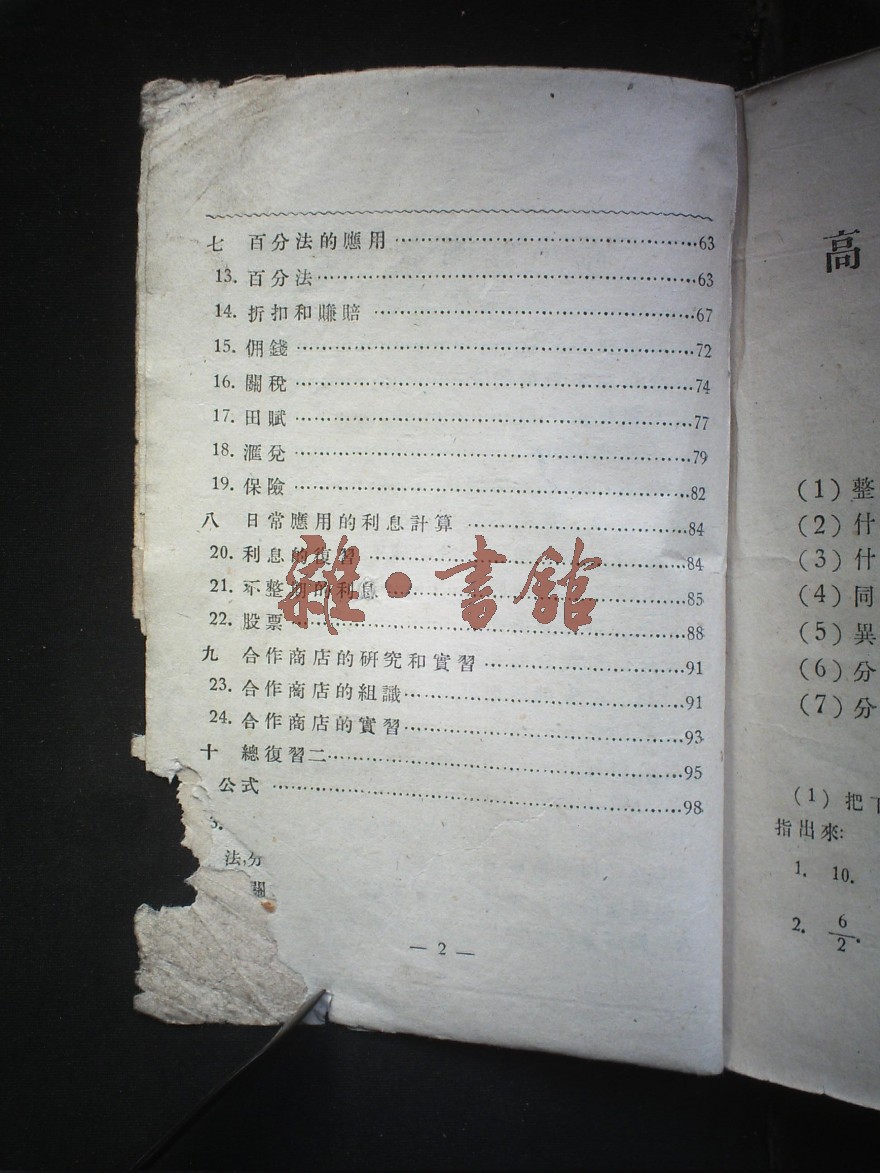 七 百分法的應用 ……63
13. 百分法 ……63
14. 折扣和賺賠 ……67
15. 佣錢 ……72
16. 關稅 ……74
17. 田賦 ……77
18. 滙兌 ……79
19. 保險 ……82
八 日常應用的利息計算 ……84
20. 利息的復習 ……84
21. 不整期的利息 ……85
22. 股票 ……88
九 合作商店的硏究和實習 ……91
23. 合作商店的組識 ……91
24. 合作商店的實習 ……93
十 總復習二 ……95
公式 ……98
3.
法,分
關
— 2 —
雜·書館
高
(1) 整
(2) 什
(3) 什
(4) 同
(5) 異
(6) 分
(7) 分
(1) 把下
指出來:
1. 10.
2. 6/2.